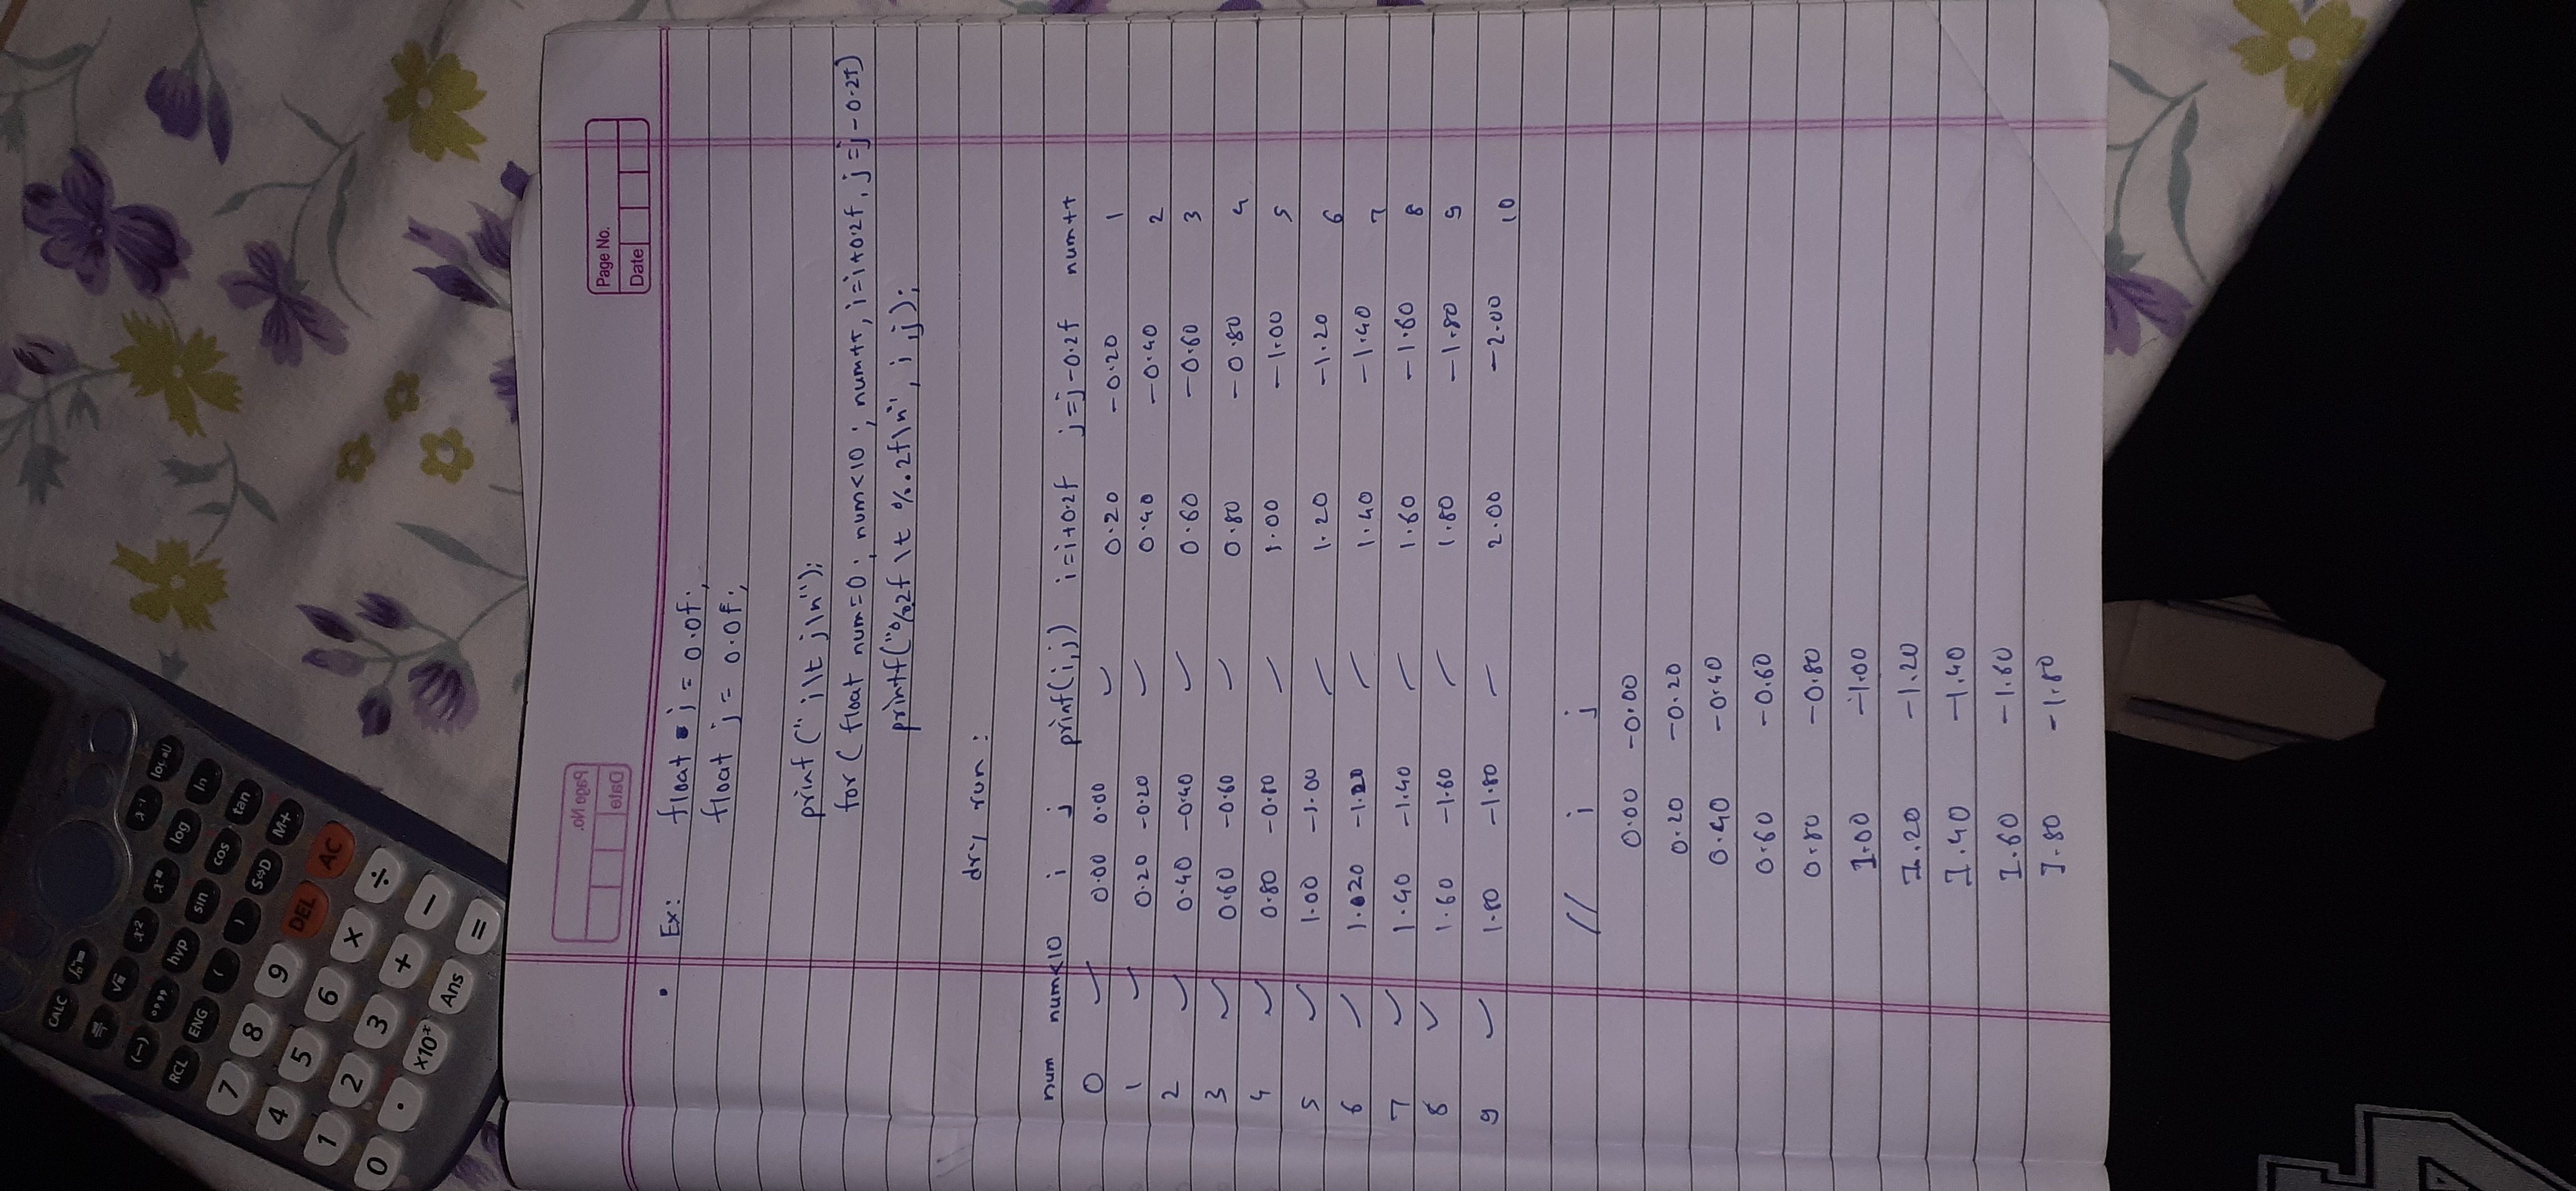 CALC
x² x⁻¹
(−) °,,, hyp log ln
RCL ENG sin cos tan
( ) S⇔D M+
7 8 9 DEL AC
4 5 6 × ÷
1 2 3 + −
0 . ×10ˣ Ans =
Page No.
Date
Page No.
Date
• Ex: float i = 0.0f;
float j = 0.0f;
printf (" i\t j\n");
for ( float num=0 ; num<10 ; num++, i=i+0.2f, j=j-0.2f)
printf("%.2f \t %.2f\n", i ,j);
dry run :
num num<10 i j printf(i,j) i=i+0.2f j=j-0.2f num++
0 ✓ 0.00 0.00 ✓ 0.20 -0.20 1
1 ✓ 0.20 -0.20 ✓ 0.40 -0.40 2
2 ✓ 0.40 -0.40 ✓ 0.60 -0.60 3
3 ✓ 0.60 -0.60 ✓ 0.80 -0.80 4
4 ✓ 0.80 -0.80 ✓ 1.00 -1.00 5
5 ✓ 1.00 -1.00 ✓ 1.20 -1.20 6
6 ✓ 1.20 -1.20 ✓ 1.40 -1.40 7
7 ✓ 1.40 -1.40 ✓ 1.60 -1.60 8
8 ✓ 1.60 -1.60 ✓ 1.80 -1.80 9
9 ✓ 1.80 -1.80 ✓ 2.00 -2.00 10
// i j
0.00 -0.00
0.20 -0.20
0.40 -0.40
0.60 -0.60
0.80 -0.80
1.00 -1.00
1.20 -1.20
1.40 -1.40
1.60 -1.60
1.80 -1.80